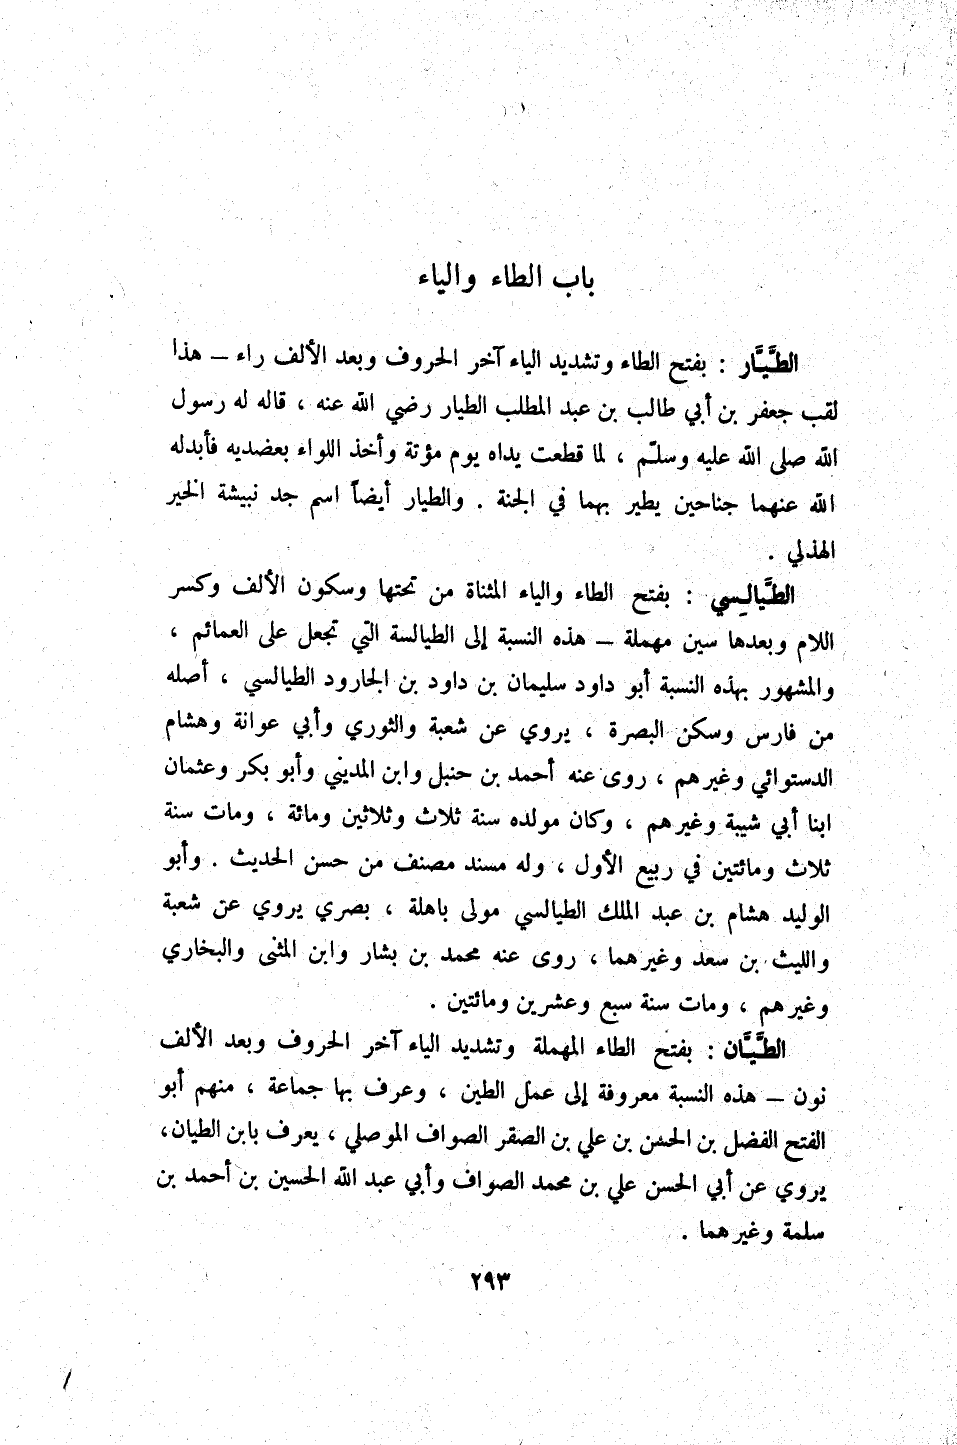 باب الطاء والياء
الطَّيَّار : بفتح الطاء وتشديد الياء آخر الحروف وبعد الألف راء – هذا
لقب جعفر بن أبي طالب بن عبد المطلب الطيار رضي الله عنه ، قاله له رسول
الله صلى الله عليه وسلّم ، لما قطعت يداه يوم مؤتة وأخذ اللواء بعضديه فأبدله
الله عنهما جناحين يطير بهما في الجنة . والطيار أيضاً اسم جد نبيشة الخير
الهذلي .
الطَّيالِسي : بفتح الطاء والياء المثناة من تحتها وسكون الألف وكسر
اللام وبعدها سين مهملة – هذه النسبة إلى الطيالسة التي تجعل على العمائم ،
والمشهور بهذه النسبة أبو داود سليمان بن داود بن الجارود الطيالسي ، أصله
من فارس وسكن البصرة ، يروي عن شعبة والثوري وأبي عوانة وهشام
الدستوائي وغيرهم ، روى عنه أحمد بن حنبل وابن المديني وأبو بكر وعثمان
ابنا أبي شيبة وغيرهم ، وكان مولده سنة ثلاث وثلاثين ومائة ، ومات سنة
ثلاث ومائتين في ربيع الأول ، وله مسند مصنف من حسن الحديث . وأبو
الوليد هشام بن عبد الملك الطيالسي مولى باهلة ، بصري يروي عن شعبة
والليث بن سعد وغيرهما ، روى عنه محمد بن بشار وابن المثنى والبخاري
وغيرهم ، ومات سنة سبع وعشرين ومائتين .
الطَّيَّان : بفتح الطاء المهملة وتشديد الياء آخر الحروف وبعد الألف
نون – هذه النسبة معروفة إلى عمل الطين ، وعرف بها جماعة ، منهم أبو
الفتح الفضل بن الحسن بن علي بن الصقر الصواف الموصلي ، يعرف بابن الطيان،
يروي عن أبي الحسن علي بن محمد الصواف وأبي عبد الله الحسين بن أحمد بن
سلمة وغيرهما .
٢٩٣